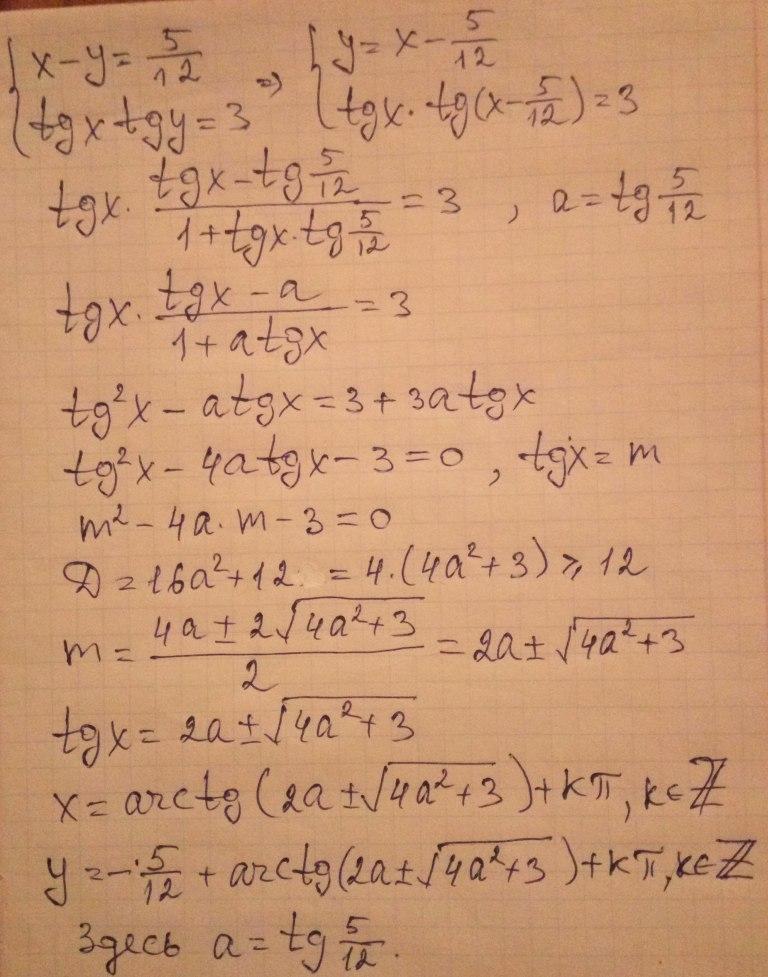 { x-y = 5/12 ; tgx tgy = 3 ⇒ { y = x - 5/12 ; tgx · tg(x - 5/12) = 3
tgx · (tgx - tg 5/12)/(1 + tgx · tg 5/12) = 3 , a = tg 5/12
tgx · (tgx - a)/(1 + a tgx) = 3
tg²x - a tgx = 3 + 3a tgx
tg²x - 4a tgx - 3 = 0 , tgx = m
m² - 4a · m - 3 = 0
D = 16a² + 12 = 4 · (4a² + 3) ⩾ 12
m = (4a ± 2√(4a² + 3))/2 = 2a ± √(4a² + 3)
tgx = 2a ± √(4a² + 3)
x = arctg (2a ± √(4a² + 3)) + kπ, k ∈ ℤ
y = - 5/12 + arctg(2a ± √(4a² + 3)) + kπ, k ∈ ℤ
Здесь a = tg 5/12.